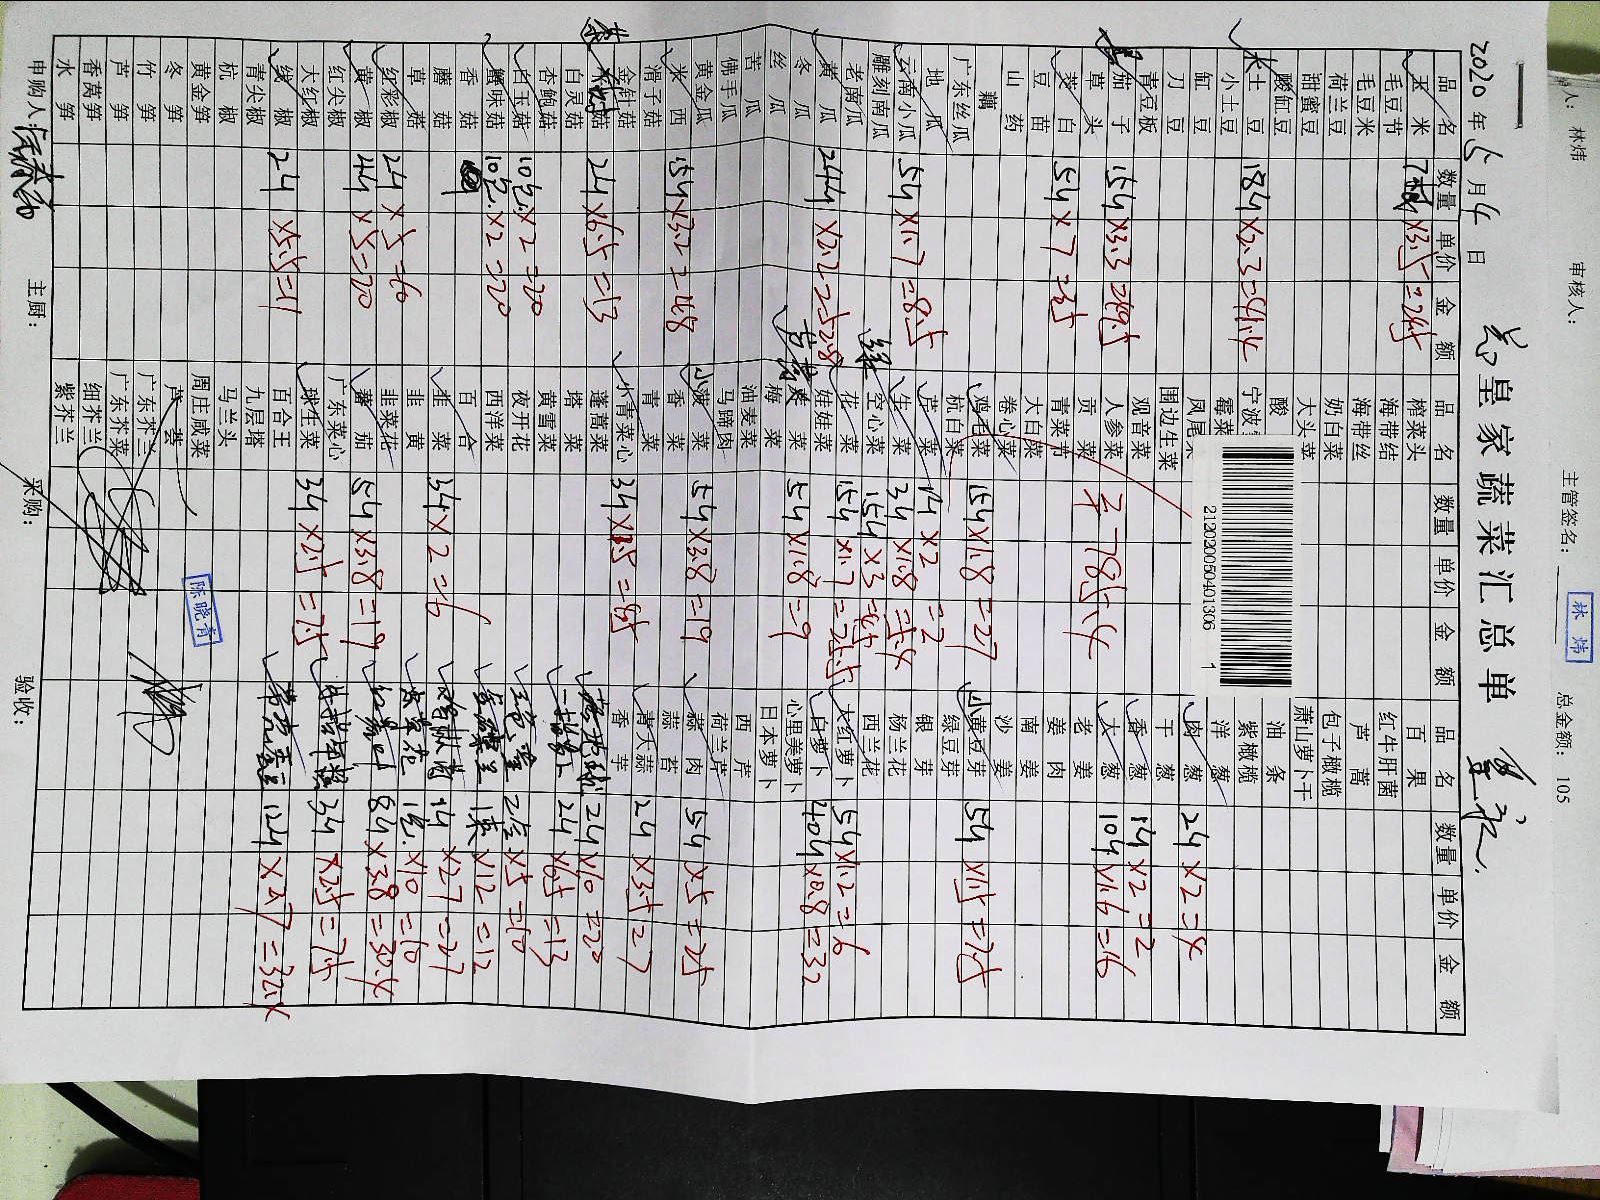 主管签名：
林炜
总金额： 105
人： 林炜
审核人：
2020年5月4日
皇家蔬菜汇总单
2120200504013061
品名 数量 单价 金额
玉米
毛豆节
毛豆米
荷兰豆
甜蜜豆
酸缸豆
小土豆
大土豆 18斤×2.3=41.4
缸豆
刀豆
青豆板
茄子 15斤×3.3=49.5
草头
茭白 5斤×7=35
豆苗
山药
藕
广东丝瓜
地瓜
云南小瓜 5斤×1.7=8.5
雕刻南瓜
老南瓜
黄瓜 24斤×2.2=52.8
冬瓜
丝瓜
苦瓜
佛手瓜
黄金瓜
米西 15斤×3.2=48
滑子菇
金针菇
2斤×6.5=13
白灵菇
杏鲍菇
白玉菇 10包×2=20
蟹味菇 10包×2=20
香菇
蘑菇
草菇
红彩椒 2斤×5=10
黄椒 4斤×5=20
红尖椒
大红椒
线椒 2斤×5.5=11
青尖椒
杭椒
黄金笋
冬笋
竹笋
芦笋
香莴笋
水笋
品名 数量 单价 金额
榨菜头
海带结
海带丝
奶白菜
大头菜
酸
宁波
霉菜
凤尾菜
围边生菜
观音菜
人参菜
贡菜
青菜节
大白菜
卷心菜
鸡毛菜 15斤×1.8=27
杭白菜
芹菜 1斤×2=2
生菜 3斤×1.8=5.4
空心菜 15斤×3=45
花菜 15斤×1.7=25.5
娃娃菜
黄菜 5斤×1.8=9
梅菜
油麦菜
马蹄肉
小菠菜 5斤×3.8=19
香菜
青菜
小青菜心
蓬蒿菜
塔菜
黄雪菜
夜开花
西洋菜
百合
韭菜 3斤×2=6
韭黄
韭菜花
蕃茄 5斤×3.8=19
广东菜心
球生菜 3斤×2.5=7.5
百合王
九层塔
马兰头
周庄咸菜
芦荟
广东芥兰
广东芥菜
细芥兰
紫芥兰
品名 数量 单价 金额
百果
红牛肝菌
芦蒿
包子橄榄
萧山萝卜干
油条
紫橄榄
洋葱
肉葱 2斤×2=4
干葱
香葱 1斤×2=2
大葱 10斤×1.6=16
老姜
姜肉
南姜
沙姜
黄豆芽 5斤×1.5=7.5
绿豆芽
银芽
杨兰花
西兰花
大红萝卜 5斤×1.2=6
白萝卜 40斤×0.8=32
心里美萝卜
日本萝卜
西芹
荷兰芹
蒜肉 5斤×5=25
蒜苔
青大蒜 2斤×3.5=7
香芋
2斤×10=20
2斤×6.5=13
2盒×5=10
×12=12
1斤×27=27
1包×10=10
8斤×3.8=30.4
3斤×2.5=7.5
12斤×2.7=32.4
陈晓青
申购人：
主厨：
采购：
验收：